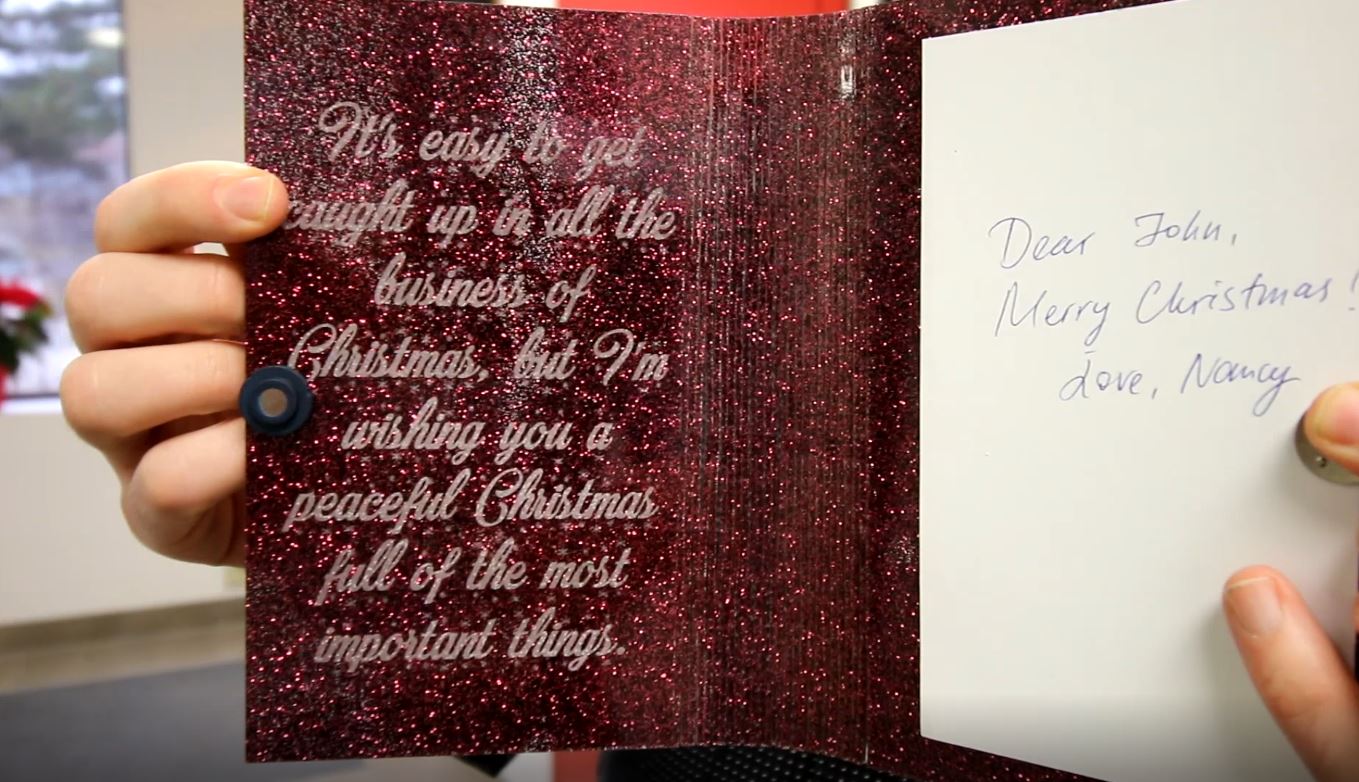 It's easy to get
caught up in all the
business of
Christmas, but I'm
wishing you a
peaceful Christmas
full of the most
important things.
Dear John,
Merry Christmas!
Love, Nancy